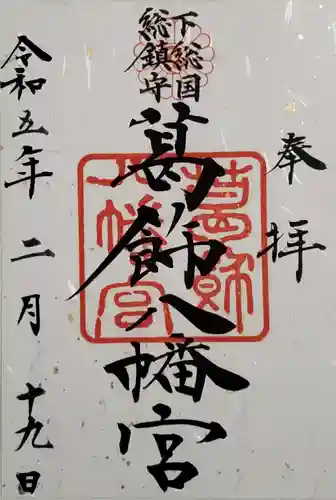 奉拝
下総国
総鎮守
葛飾八幡宮
令和五年二月十九日
葛飾
八幡宮